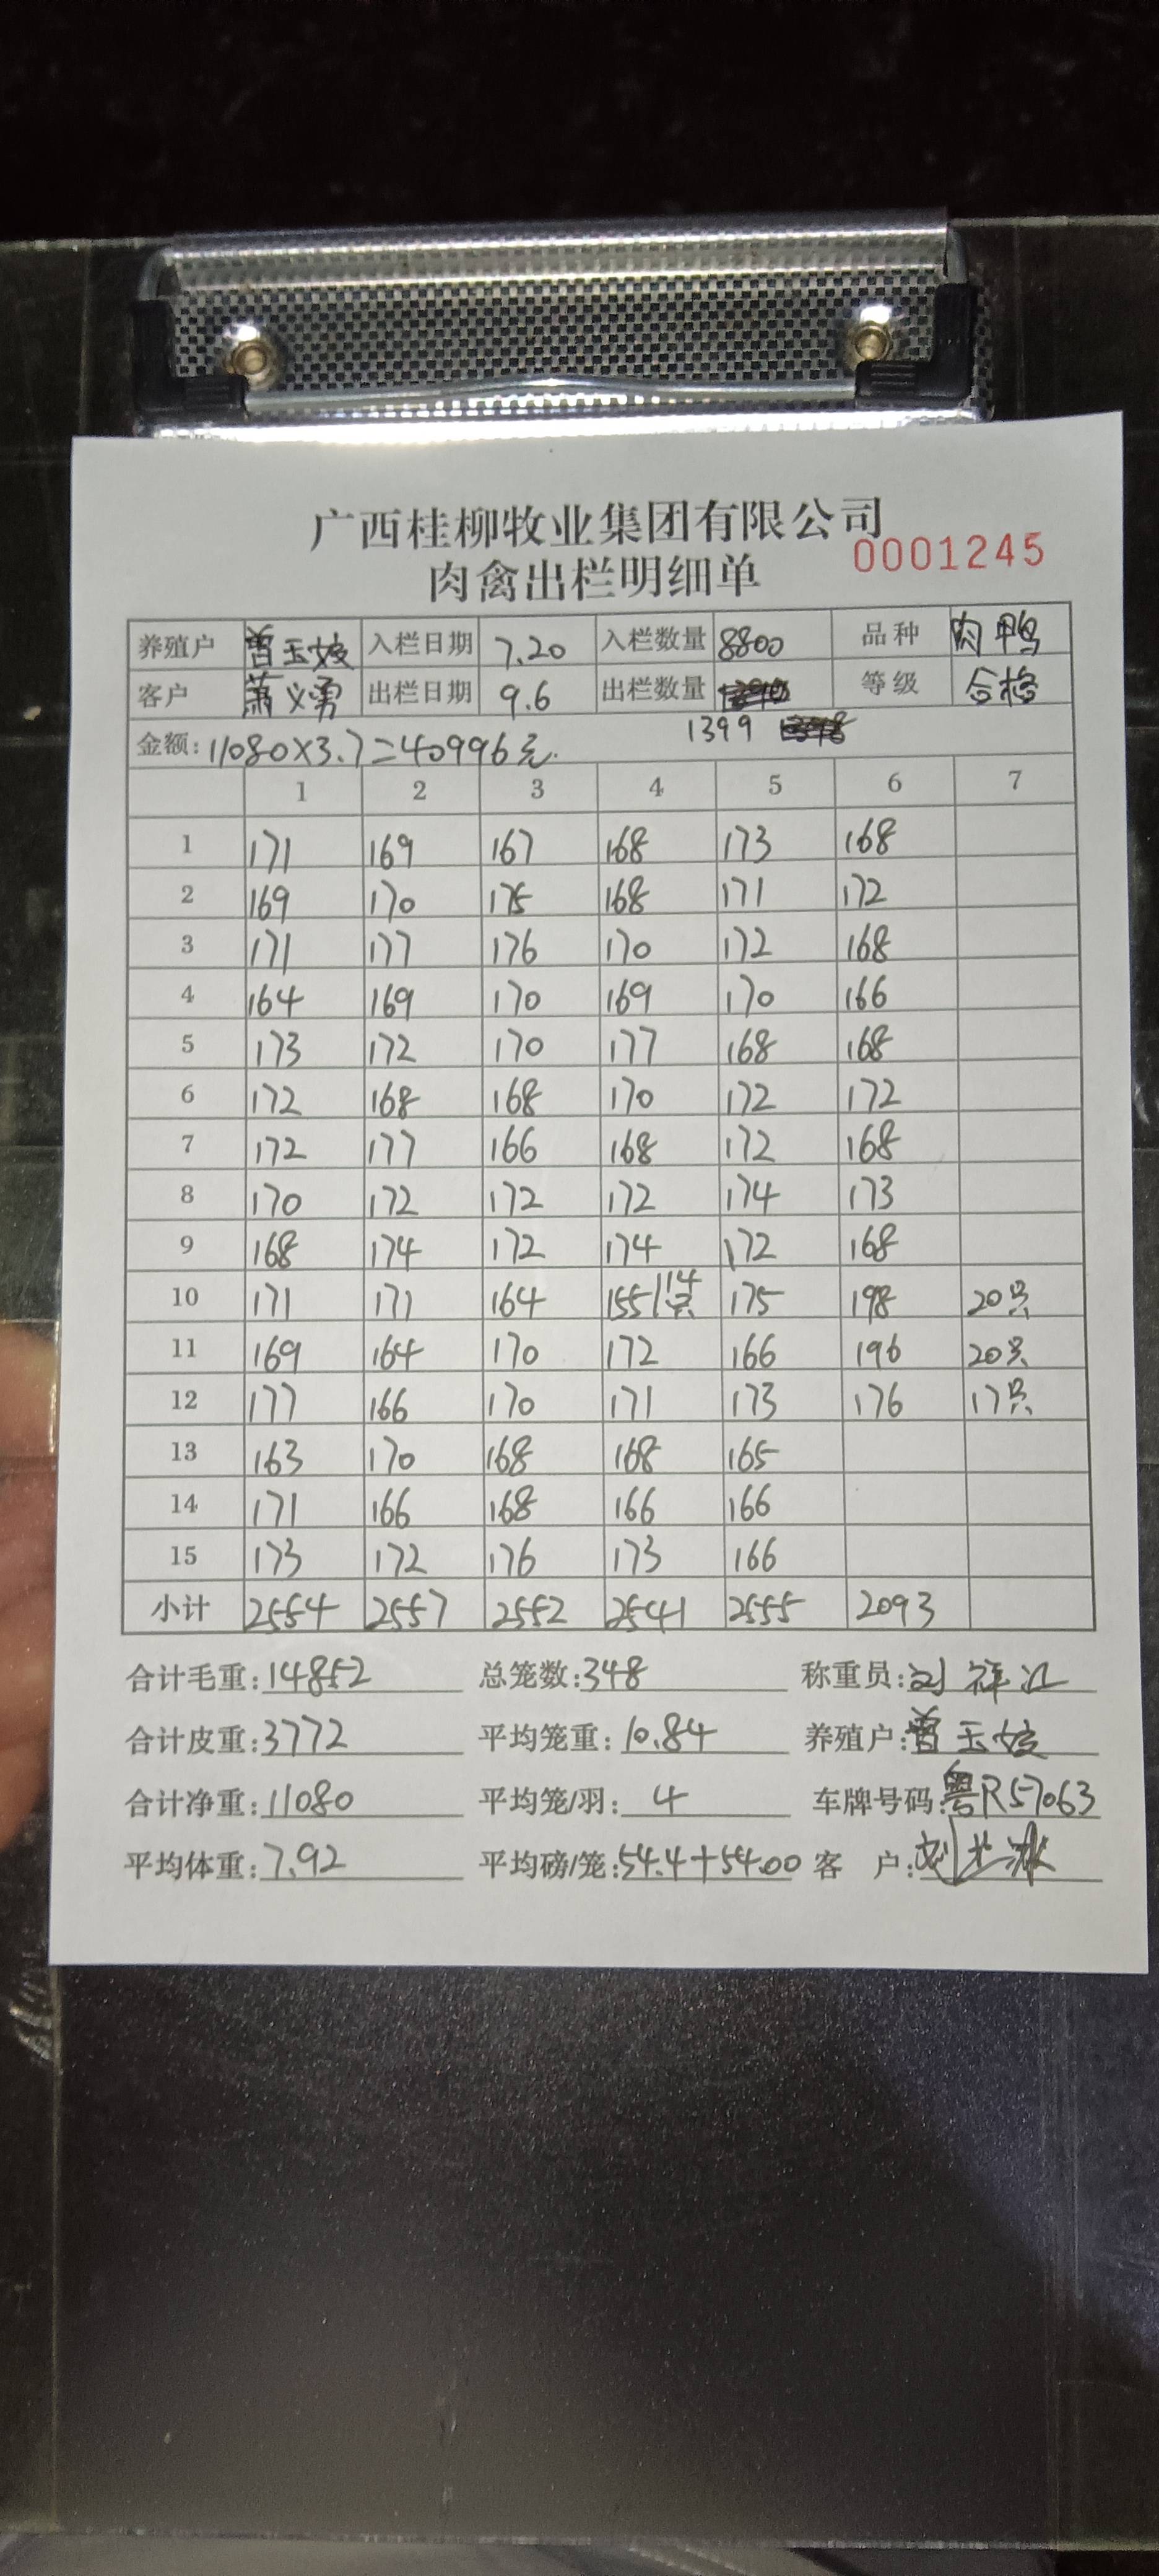 广西桂柳牧业集团有限公司
肉禽出栏明细单 0001245
养殖户 曾玉姣 入栏日期 7.20 入栏数量 8800 品种 肉鸭
客户 萧义勇 出栏日期 9.6 出栏数量 等级 合格
金额: 11080×3.7=40996元. 1399
1 2 3 4 5 6 7
1 171 169 167 168 173 168
2 169 170 175 168 171 172
3 171 177 176 170 172 168
4 164 169 170 169 170 166
5 173 172 170 177 168 168
6 172 168 168 170 172 172
7 172 177 166 168 172 168
8 170 172 172 172 174 173
9 168 174 172 174 172 168
10 171 171 164 155/14只 175 198 20只
11 169 164 170 172 166 196 20只
12 177 166 170 171 173 176 17只
13 163 170 168 168 165
14 171 166 168 166 166
15 173 172 176 173 166
小计 2554 2557 2552 2541 2555 2093
合计毛重: 14852 总笼数: 348 称重员: 刘祥江
合计皮重: 3772 平均笼重: 10.84 养殖户: 曾玉姣
合计净重: 11080 平均笼/羽: 4 车牌号码: 粤R57063
平均体重: 7.92 平均磅/笼: 54.4+54.00 客 户: